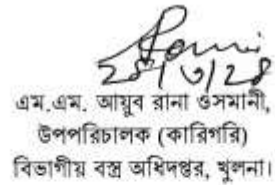 ২৮/৩/২৪
এম.এম. আয়ুব রানা ওসমানী,
উপপরিচালক (কারিগরি)
বিভাগীয় বস্ত্র অধিদপ্তর, খুলনা।